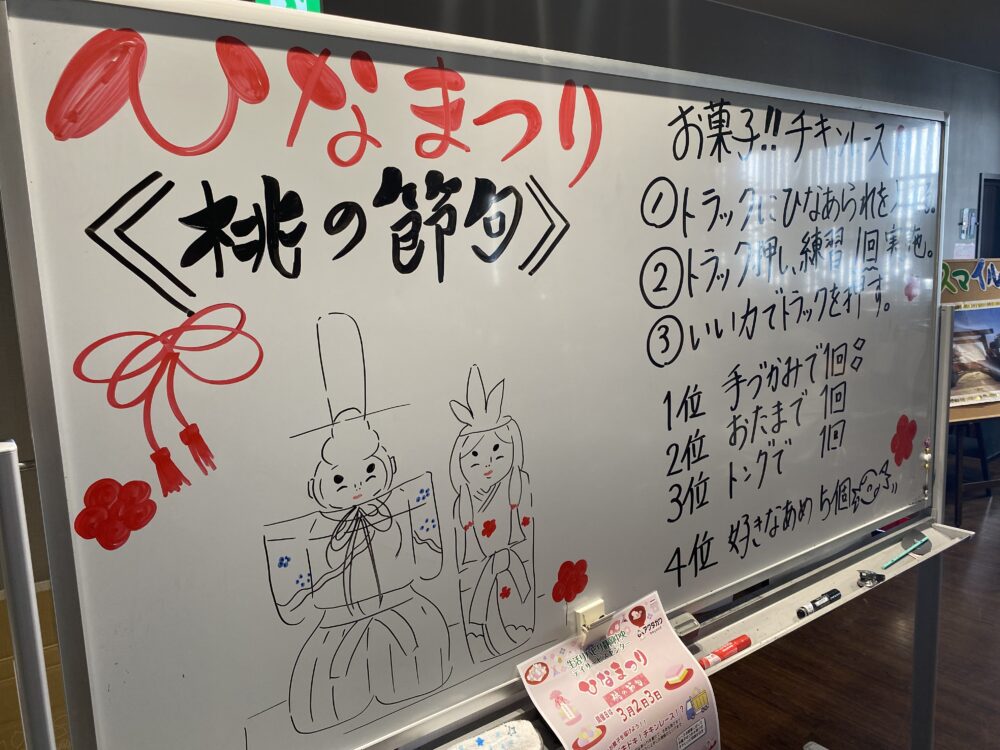 ひなまつり
《桃の節句》
お菓子!! チキンレース
①トラックにひなあられを
②トラック押し、練習1回実施。
③いい力でトラックを押す。
1位 手づかみで1回
2位 おたまで 1回
3位 トングで 1回
4位 好きなあめ5個
スマイル
デイサービスセンター
ひなまつり
桃の節句
3月2日3日
チキンレース!?